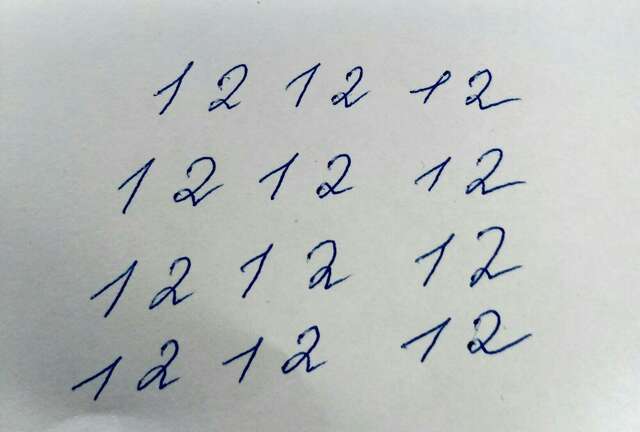 12 12 12
12 12 12
12 12 12
12 12 12